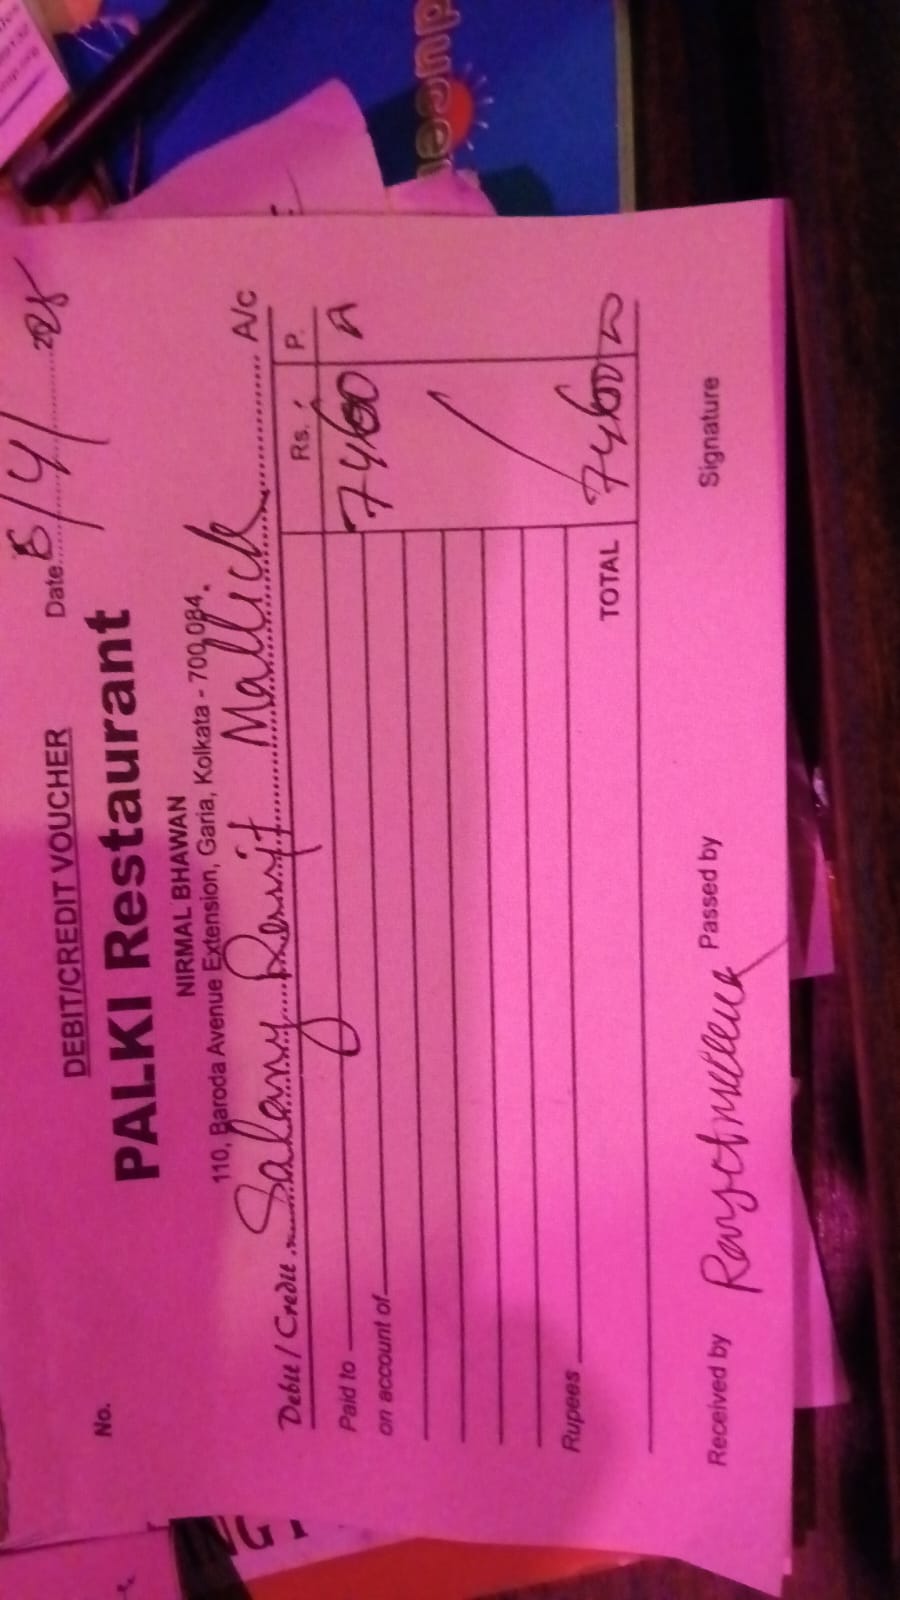 DEBIT/CREDIT VOUCHER
No.
Date 8/4/2025
PALKI Restaurant
NIRMAL BHAWAN
110, Baroda Avenue Extension, Garia, Kolkata - 700 084.
Debit / Credit Salary Renjit Mallick A/c
Rs. P.
Paid to 7460
on account of
Rupees
TOTAL 7460
Received by Passed by Signature
ducer